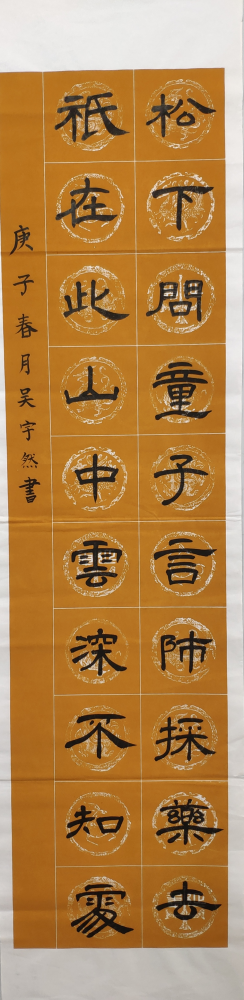 松下問童子言師採藥去
祇在此山中雲深不知處
庚子春月吴宇然書